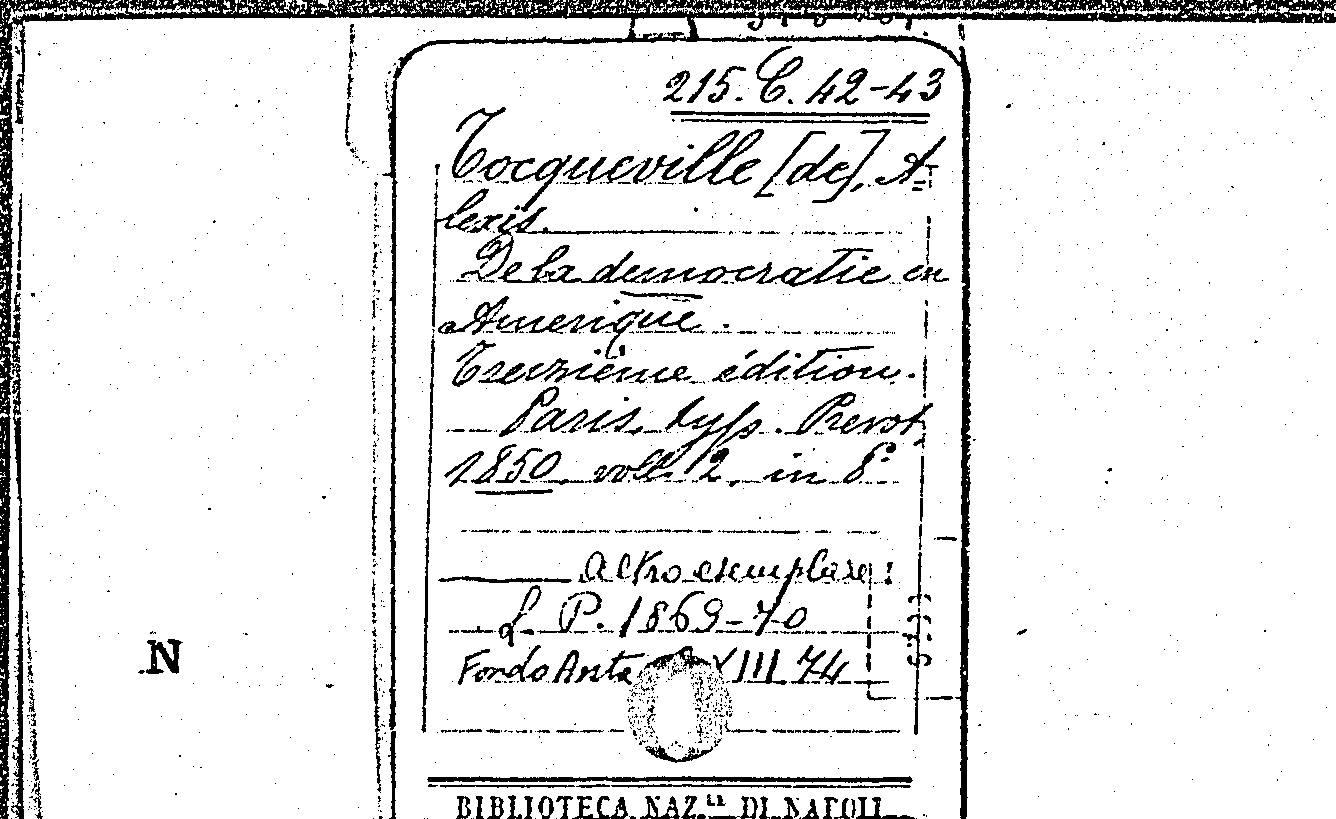 215. C. 42-43
Tocqueville [de], A-
lexis.
De la democratie en
Amerique.
Treizième édition.
Paris, typ. Prevot,
1850, voll. 2, in 8°
altro esemplare:
L. P. 1869-70
Fondo Aosta XIII 74
N
BIBLIOTECA NAZ.LE DI NAPOLI